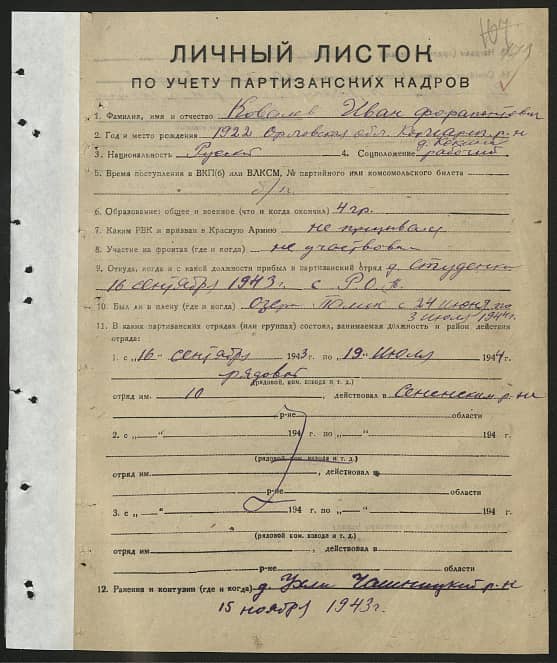 107
ЛИЧНЫЙ ЛИСТОК
ПО УЧЕТУ ПАРТИЗАНСКИХ КАДРОВ
1. Фамилия, имя и отчество Ковалев Иван
2. Год и место рождения 1922 Орловская обл. р-н
3. Национальность Русский 4. Соцположение рабочий
5. Время поступления в ВКП(б) или ВЛКСМ, № партийного или комсомольского билета
б/п
6. Образование: общее и военное (что и когда окончил) 4 гр.
7. Каким РВК и призван в Красную Армию не призывался
8. Участие на фронтах (где и когда) не участвовал
9. Откуда, когда и с какой должности прибыл в партизанский отряд д. Студенка
16 сентября 1943 г. с Р.О.А.
10. Был ли в плену (где и когда) Озеро с 24 июня по
3 июля 1944г.
11. В каких партизанских отрядах (или группах) состоял, занимаемая должность и район действия
отряда:
1. с „16“ сентября 1943 г. по „19“ июля 1944 г.
рядовой
(рядовой, ком. взвода и т. д.)
отряд им. 10, действовал в Сененским р-не
р-не области
2. с „ “ 194 г. по „ “ 194 г.
(рядовой, ком. взвода и т. д.)
отряд им. , действовал в
р-не области
3. с „ “ 194 г. по „ “ 194 г.
(рядовой, ком. взвода и т. д.)
отряд им. , действовал в
р-не области
12. Ранения и контузии (где и когда) д. Ухли Чашницкий р-н
15 ноября 1943г.